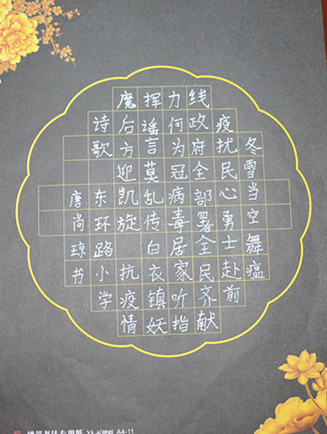 冬雪当空舞瘟
疫扰民心勇士赴前
线政府全部署全民齐献
力何为冠病毒居家听指
挥谣言莫乱传白衣镇妖
魔后方迎凯旋 抗疫情
诗歌 东环路小学
唐尚琼书